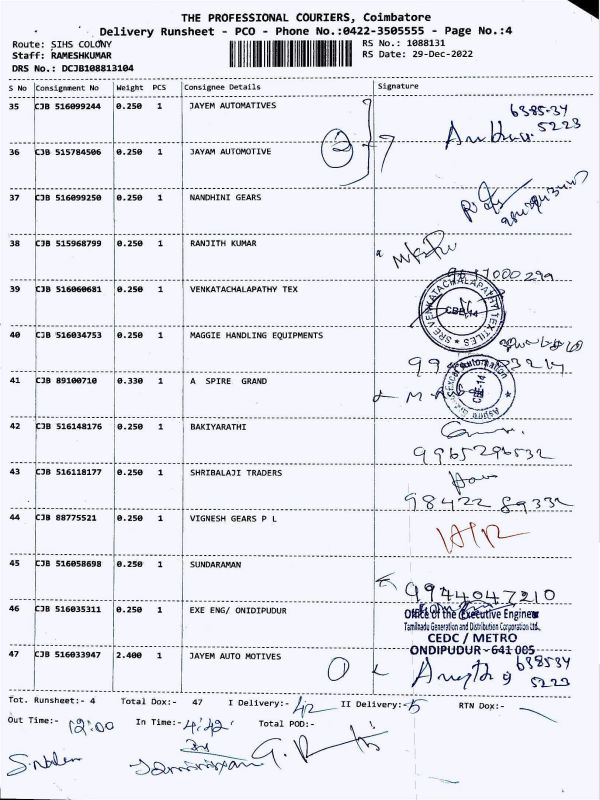 THE PROFESSIONAL COURIERS, Coimbatore
Delivery Runsheet - PCO - Phone No.:0422-3505555 - Page No.:4
Route: SIHS COLONY
RS No.: 1088131
Staff: RAMESHKUMAR
RS Date: 29-Dec-2022
DRS No.: DCJB108813104
S No Consignment No Weight PCS Consignee Details Signature
35 CJB 516099244 0.250 1 JAYEM AUTOMATIVES
6385-34
5223
2
36 CJB 515784506 0.250 1 JAYAM AUTOMOTIVE
37 CJB 516099250 0.250 1 NANDHINI GEARS
38 CJB 515968799 0.250 1 RANJITH KUMAR
39 CJB 516060681 0.250 1 VENKATACHALAPATHY TEX
SREE VENKATACHALAPATHY TEXTILES
CBE-14
40 CJB 516034753 0.250 1 MAGGIE HANDLING EQUIPMENTS
41 CJB 89100710 0.330 1 A SPIRE GRAND
CBE-14
42 CJB 516148176 0.250 1 BAKIYARATHI
9965296532
43 CJB 516118177 0.250 1 SHRIBALAJI TRADERS
98422 89332
44 CJB 88775521 0.250 1 VIGNESH GEARS P L
45 CJB 516058698 0.250 1 SUNDARAMAN
9944047210
46 CJB 516035311 0.250 1 EXE ENG/ ONIDIPUDUR
Office of the Executive Engineer
Tamilnadu Generation and Distribution Corporation Ltd.,
CEDC / METRO
ONDIPUDUR - 641 005
47 CJB 516033947 2.400 1 JAYEM AUTO MOTIVES
1
638534
5223
Tot. Runsheet:- 4 Total Dox:- 47 I Delivery:- 42 II Delivery:- 5 RTN Dox:-
Out Time:- 12:00 In Time:- 4:42 Total POD:-